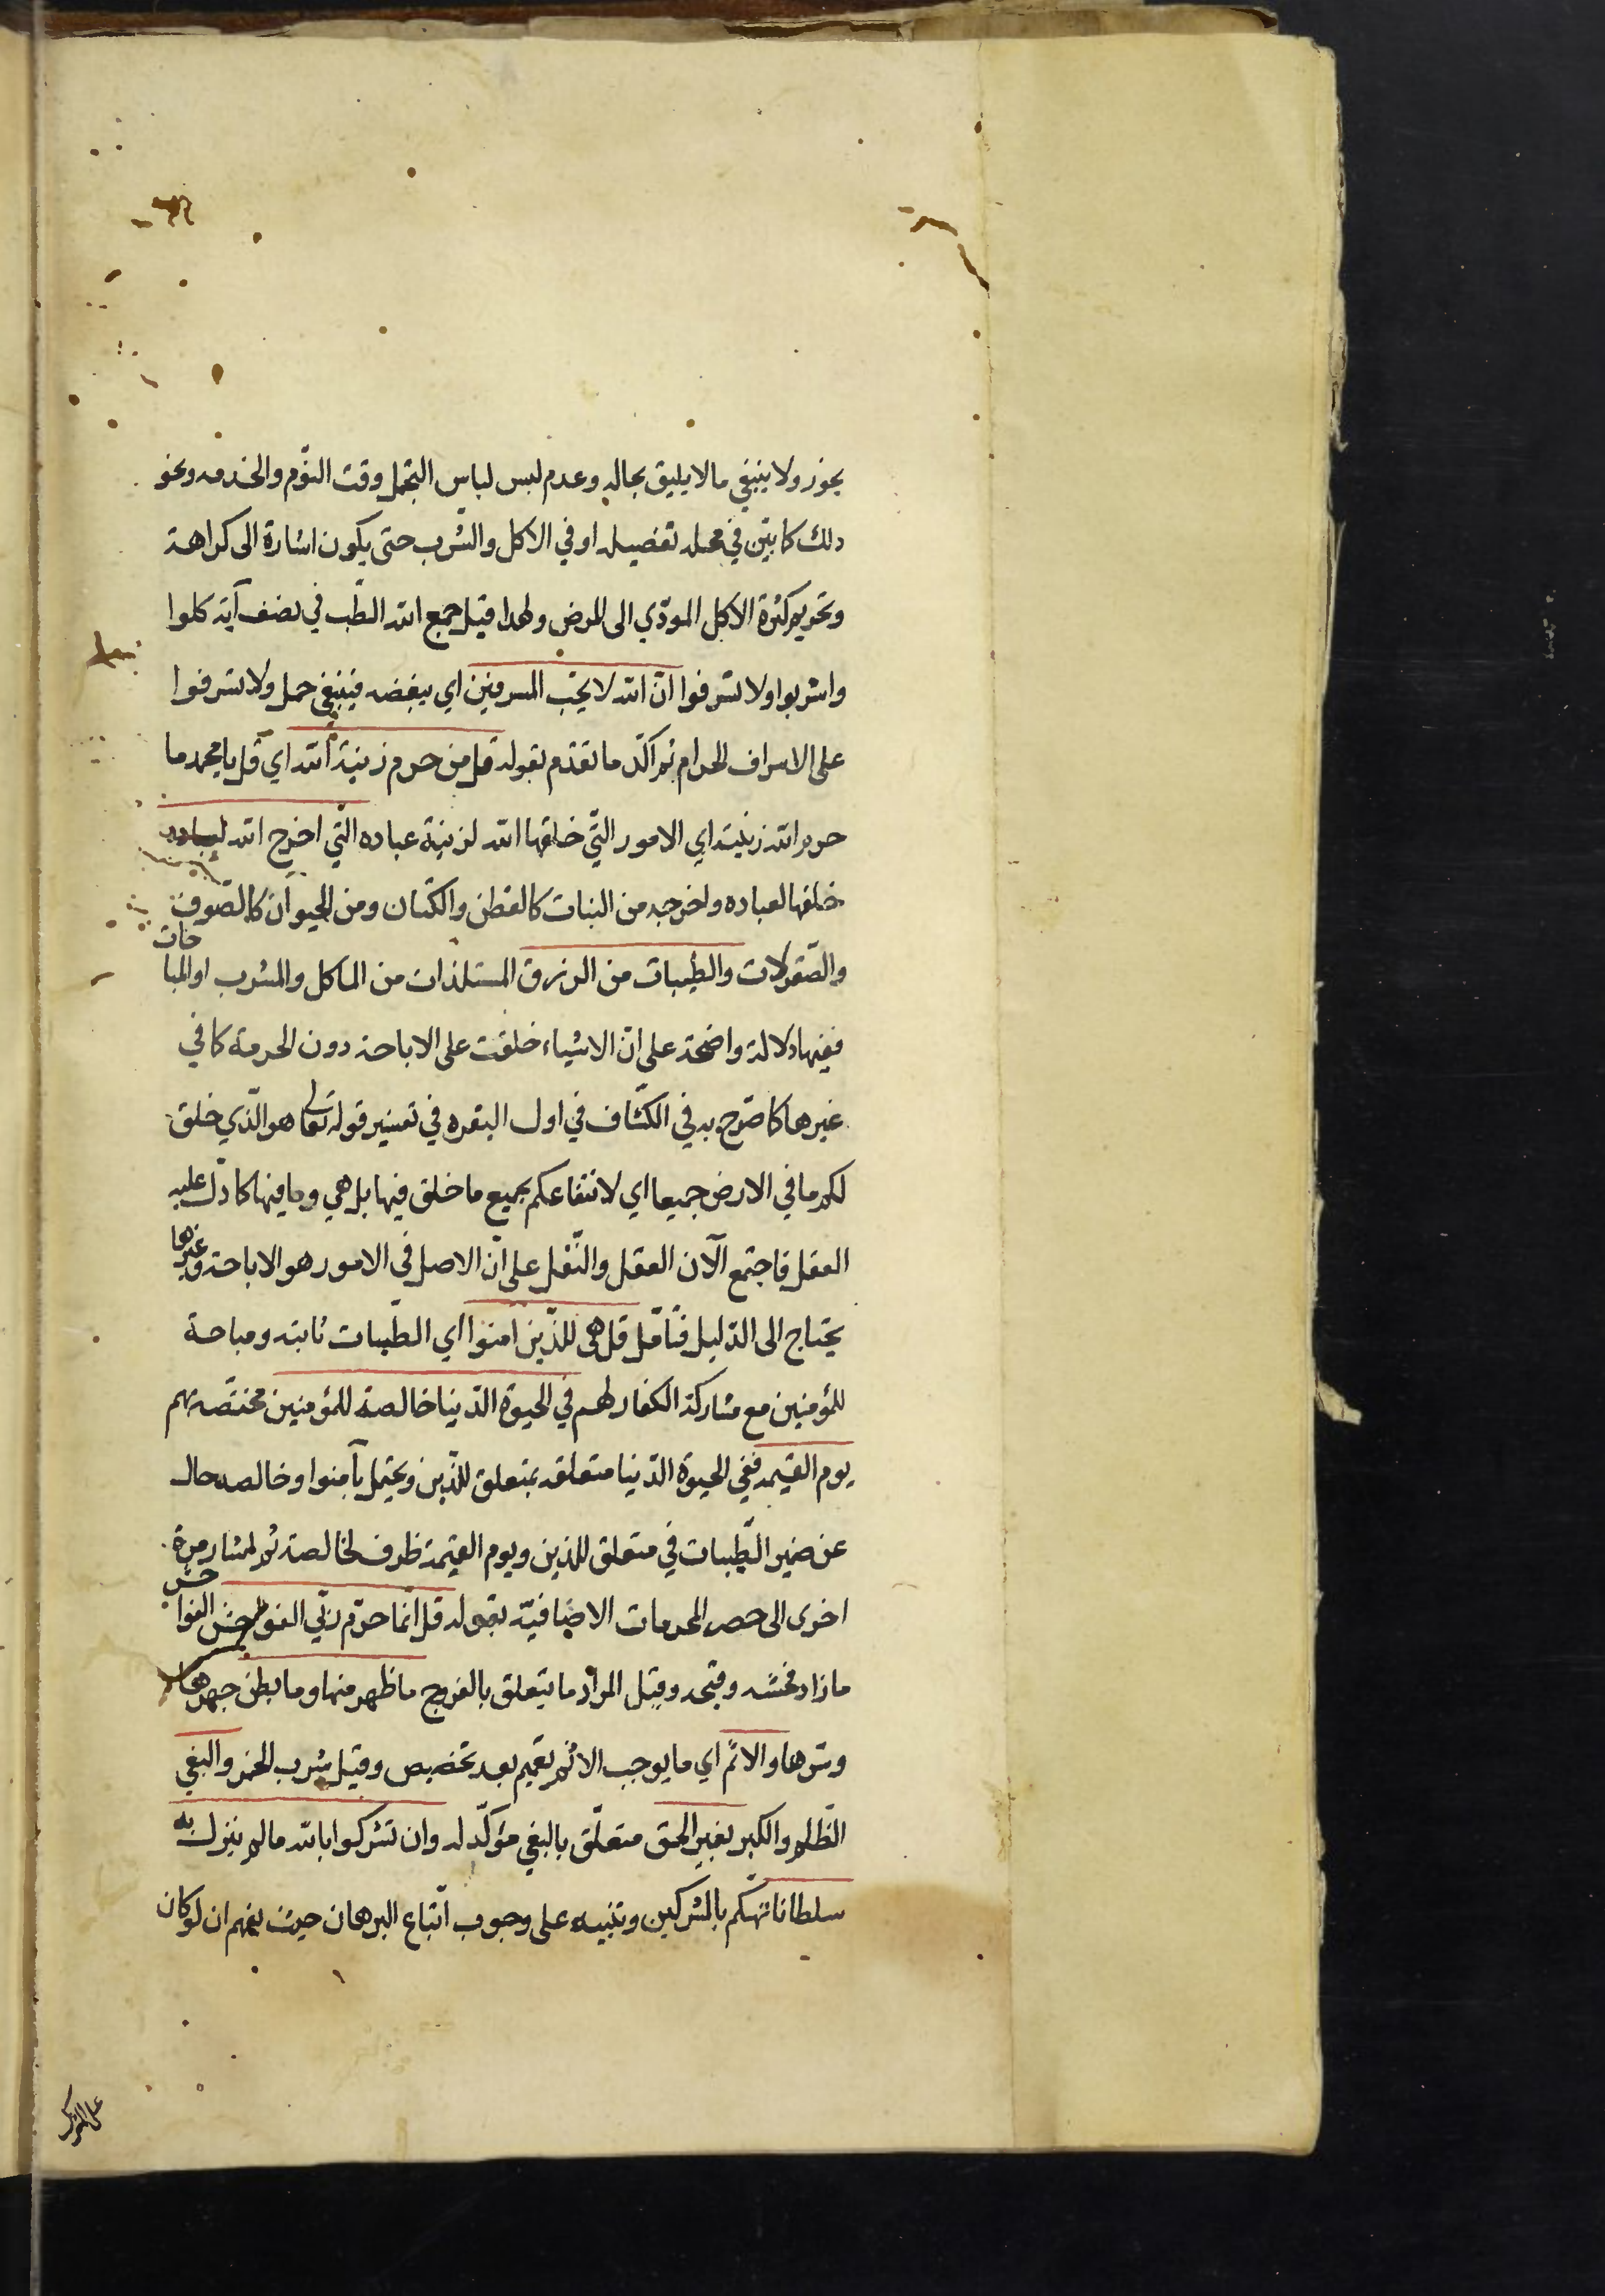 يجوز ولا ينبغي ما لا يليق بحاله وعدم لبس لباس التجمل وقت النوم والخدمه ونحو
ذلك كما بيّن في محله تفصيله او في الاكل والشرب حتى يكون اشارة الى كراهة
وتحريم كثرة الاكل المودّي الى المرض ولهذا قيل جمع الله الطّب في نصف آية كلوا
واشربوا ولا تسرفوا انّ الله لا يحّب المسرفين اي يبغضه فينبغي حمل ولا تسرفوا
على الاسراف الحرام ثم اكّد ما تقدّم بقوله قل من حرم زينة الله اي قل يا محمد ما
حرم الله زينته اي الامور التّي خلقها الله لزينة عباده التّي اخرج الله لعباده
خلقها لعباده واخرجه من النبات كالقطن والكتان ومن الحيوان كالصّوف
والصّقرلات والطيّبات من الرزق المستلذات من الماكل والمشرب او المباحات
ففيها دلالة واضحة على انّ الاشياء خلقت على الاباحة دون الحرمة كما في
غيرها كما صّرح به في الكشّاف في اول البقره في تفسير قوله تعالى هو الّذي خلق
لكم ما في الارض جميعا اي لانتفاعكم بجميع ما خلق فيها بل هي وما فيها كما دلّ عليه
العقل فاجتمع الآن العقل والنّقل على انّ الاصل في الامور هو الاباحة وغيرها
يحتاج الى الدّليل فتأمّل قل هى للذّين امنوا اي الطّيبات ثابته ومباحة
للمؤمنين مع مشاركة الكفار لهم في الحيوة الدّنيا خالصة للمؤمنين مختصّة بهم
يوم القيمه ففي الحيوة الدّنيا متعلقه بمتعلق للذّين ويحتمل بآمنوا وخالصه حال
عن ضمير الطّيبات في متعلق للذين ويوم القيمة ظرف لخالصة ثم اشار مرة
اخرى الى حصر المحرمات الاضافيّه بقوله قل انّما حرّم ربّي الفواحش الفواحش
ما زاد فحشه وقبحه وقيل المراد ما يتعلق بالفروج ما ظهر منها وما بطن جهرها
وسّرها والاثم اي ما يوجب الاثم تعميم بعد تخصيص وقيل شرب الخمر والبغي
الظّلم والكبر بغير الحق متعلّق بالبغي مؤكّد له وان تشركوا بالله ما لم ينزل به
سلطانا تهكّم بالمشركين وتنبيه على وجوب اتّباع البرهان حيث يفهم ان لو كان
على الشرك